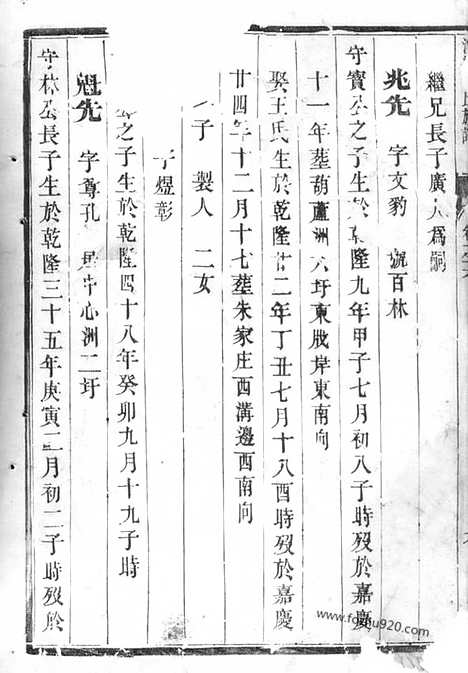 繼兄長子廣人為嗣
兆先 字文豹 號百林
守寶公之子生於乾隆九年甲子七月初八子時歿於嘉慶
十一年葬葫蘆洲六圩東戤岸東南向
娶王氏生於乾隆廿二年丁丑七月十八酉時歿於嘉慶
廿四年十二月十七葬朱家庄西溝邊西南向
子 製人 二女
字煜彰
公之子生於乾隆四十八年癸卯九月十九子時
魁先 字尊孔 居中心洲二圩
守林公長子生於乾隆三十五年庚寅二月初二子時歿於
www.foxue920.com